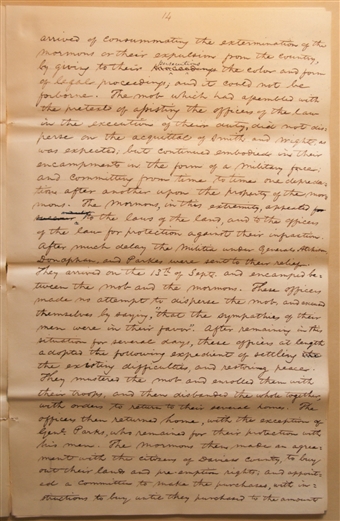 14
arrived of consummating the extermination of the
mormons or their expulsion from the country,
by giving to their persecutions the color and form
of legal proceedings, and it could not be
forborne. The mob which had assembled with
the pretext of assisting the officers of the law
in the execution of their duty, did not dis
perse on the acquittal of Smith and Wight, as
was expected, but continued embodied in their
encampment in the form of a military force,
and committing from time to time one depreda-
tion after another upon the property of the mor
mons. The mormons, in this extremity, appealed for
to the laws of the land, and to the officers
of the law for protection against their injustice.
After much delay the militia under Generals Atchison
Donaphan, and Parkes were sent to their relief.
They arrived on the 13th of Sept. and encamped be-
tween the mob and the mormons. These officers
made no attempt to disperse the mob, and excused
themselves by saying, "that the sympathies of their
men were in their favor". After remaining in this
situation for several days, these officers at length
adopted the following expedient of settling
the existing difficulties, and restoring peace.
They mustered the mob and enrolled them with
their troops, and then disbanded the whole together,
with orders to return to their several homes. The
officers then returned home, with the exception of
Genl. Parks, who remained for their protection with
his men. The mormons then made an agree
ment with the citizens of Daviess county, to buy
out their lands and pre-emption rights, and appoint
ed a committee to make the purchases, with in-
structions to buy until they purchased to the amount